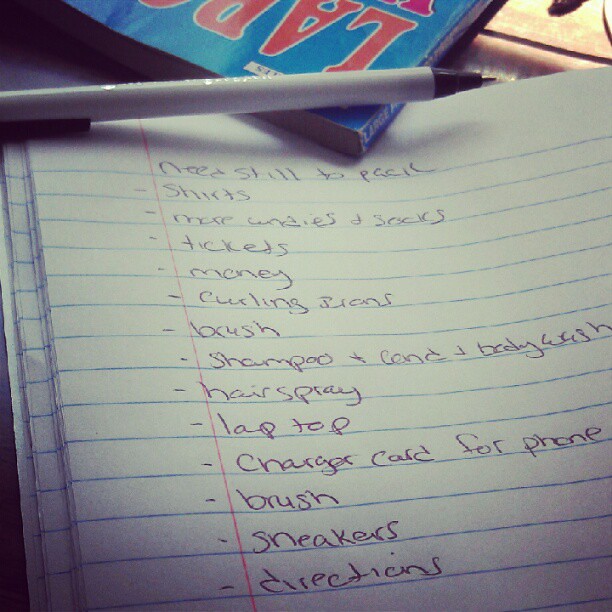 LARG
need still to pack
- Shirts
- more undies & socks
- tickets
- money
- Curling Irons
- brush
- Shampoo + Cond + body wash
- hairspray
- laptop
- Charger Card for phone
- brush
- sneakers
- directions